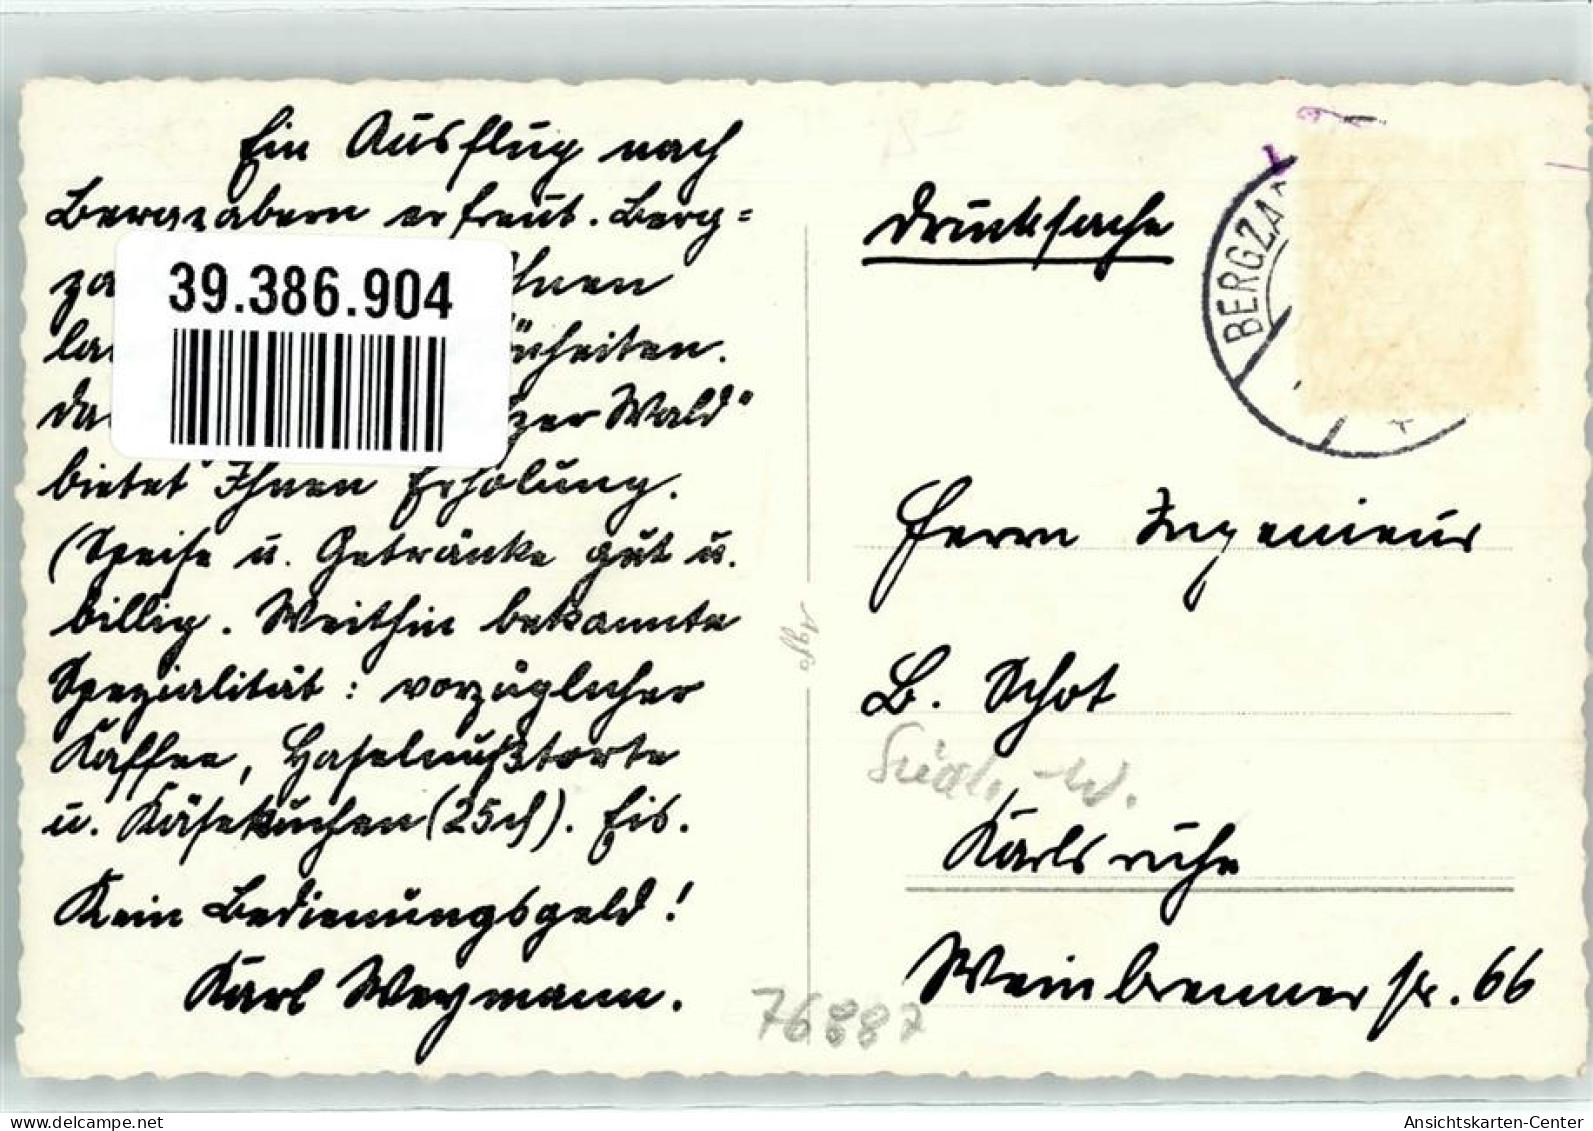 Ein Ausflug nach
Bergzabern erfreut. Berg=
za Ihnen
la önheiten.
Da lzer Wald"
bietet Ihnen Erholung.
(Speise u. Getränke gut u.
billig. Weithin bekannte
Spezialität: vorzüglicher
Kaffee, Haselnußtorte
u. Käsekuchen (25 ₰). Eis.
Kein Bedienungsgeld!
Karl Weymann.
39.386.904
Drucksache
BERGZA
Herrn Ingenieur
B. Schot
Karlsruhe
Weinbrennerstr. 66
76887
Ansichtskarten-Center
www.delcampe.net